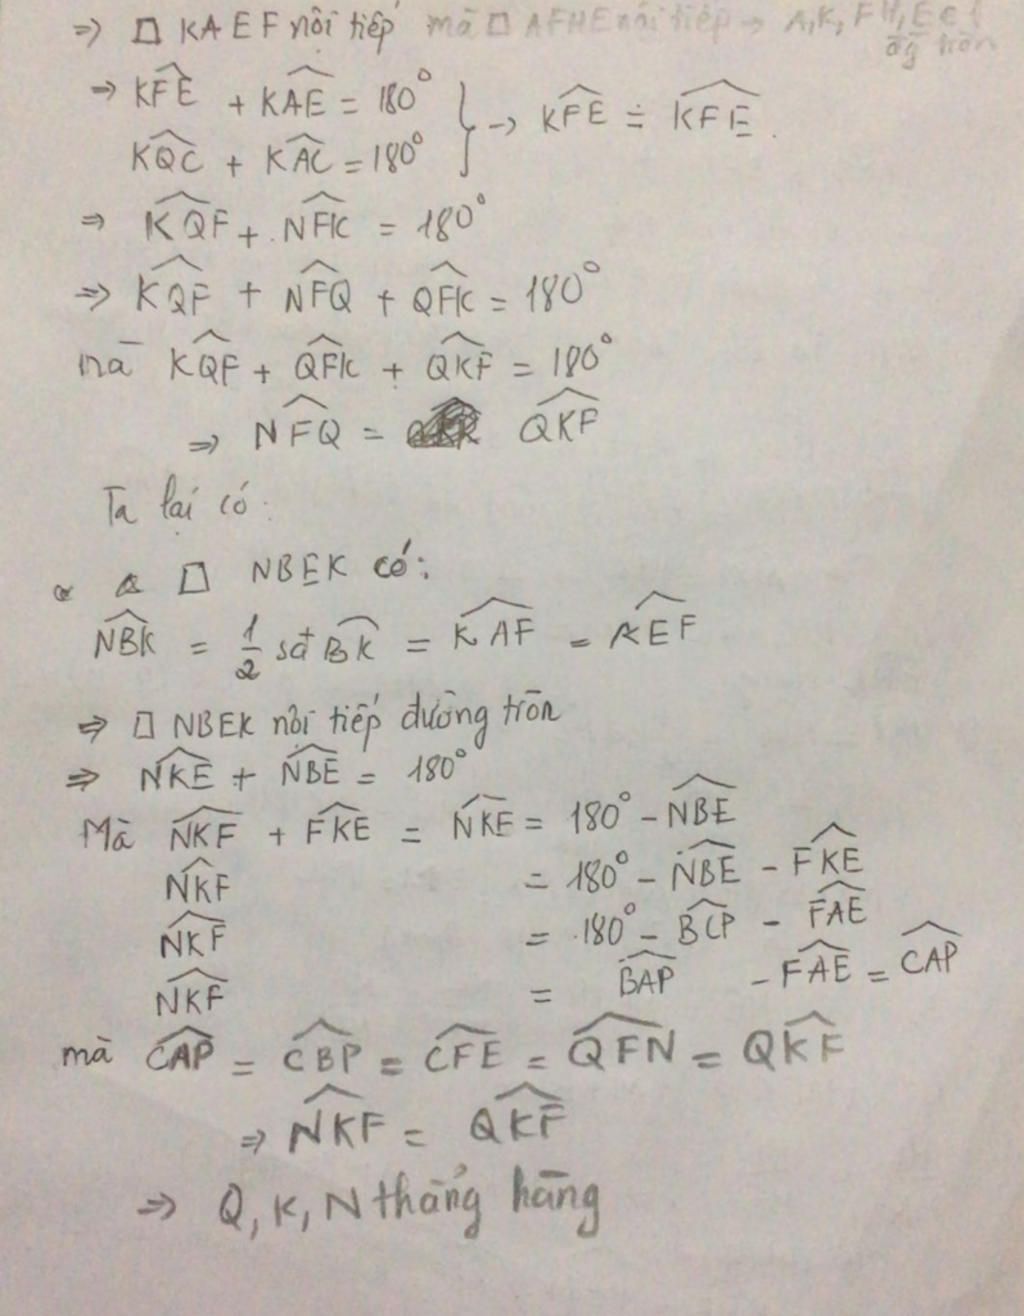 ⇒ □ KAEF nội tiếp mà □ AFHE nội tiếp → A, K, F, H, E ∈ 1
đg tròn
→ \widehat{KFE} + \widehat{KAE} = 180°
} → \widehat{KFE} = \widehat{KFE}.
\widehat{KQC} + \widehat{KAC} = 180°
⇒ \widehat{KQF} + \widehat{NFK} = 180°
⇒ \widehat{KQF} + \widehat{NFQ} + \widehat{QFK} = 180°
mà \widehat{KQF} + \widehat{QFK} + \widehat{QKF} = 180°
⇒ \widehat{NFQ} = \widehat{QKF}
Ta lại có:
□ NBEK có:
\widehat{NBK} = 1/2 sđ \widehat{BK} = \widehat{KAF} = \widehat{KEF}
⇒ □ NBEK nội tiếp đường tròn
⇒ \widehat{NKE} + \widehat{NBE} = 180°
Mà \widehat{NKF} + \widehat{FKE} = \widehat{NKE} = 180° - \widehat{NBE}
\widehat{NKF} = 180° - \widehat{NBE} - \widehat{FKE}
\widehat{NKF} = 180° - \widehat{BCP} - \widehat{FAE}
\widehat{NKF} = \widehat{BAP} - \widehat{FAE} = \widehat{CAP}
mà \widehat{CAP} = \widehat{CBP} = \widehat{CFE} = \widehat{QFN} = \widehat{QKF}
⇒ \widehat{NKF} = \widehat{QKF}
⇒ Q, K, N thẳng hàng